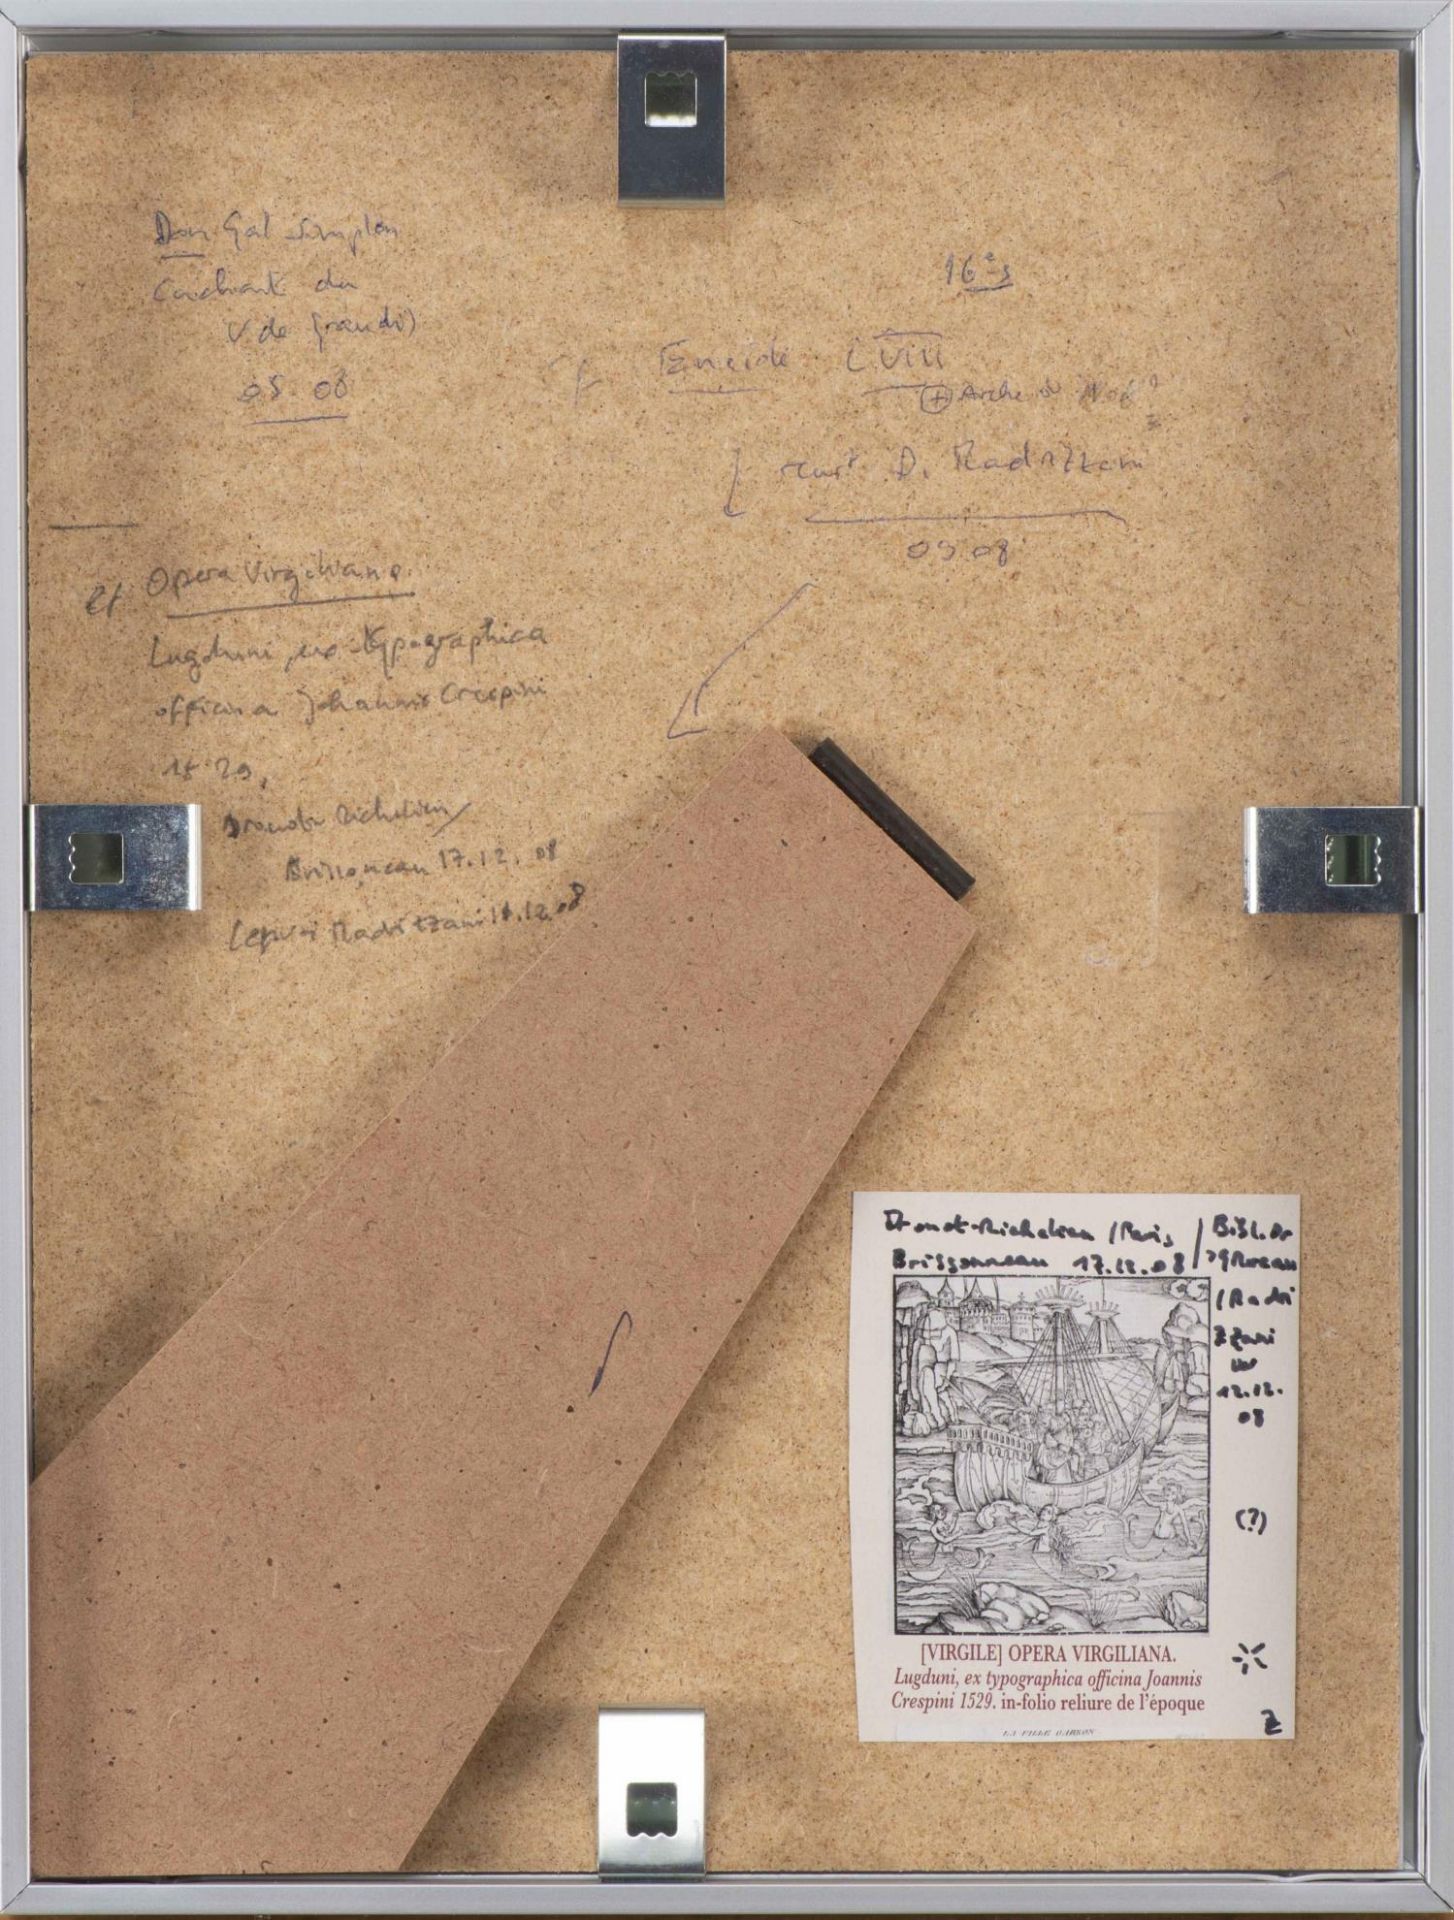 Don Gal Simplon
V de Grandi)
05 08
16e s
Eneide L VIII
+ Arche de Noé ?
D. Madrizzani
05 08
et Opera Virgiliana
Lugduni, ex typographica
officina Johannis Crespini
1529,
Drouot Richelieu /
Brissonneau 17.12.08
Madrizzani 12.08
Drouot-Richelieu / Paris
Brissonneau 17.12.08
Bibl. Dr
/ Madri
zzani
12.12.
08
(?)
[VIRGILE] OPERA VIRGILIANA.
Lugduni, ex typographica officina Joannis
Crespini 1529. in-folio reliure de l'époque
LA FILLE GARSON
Z